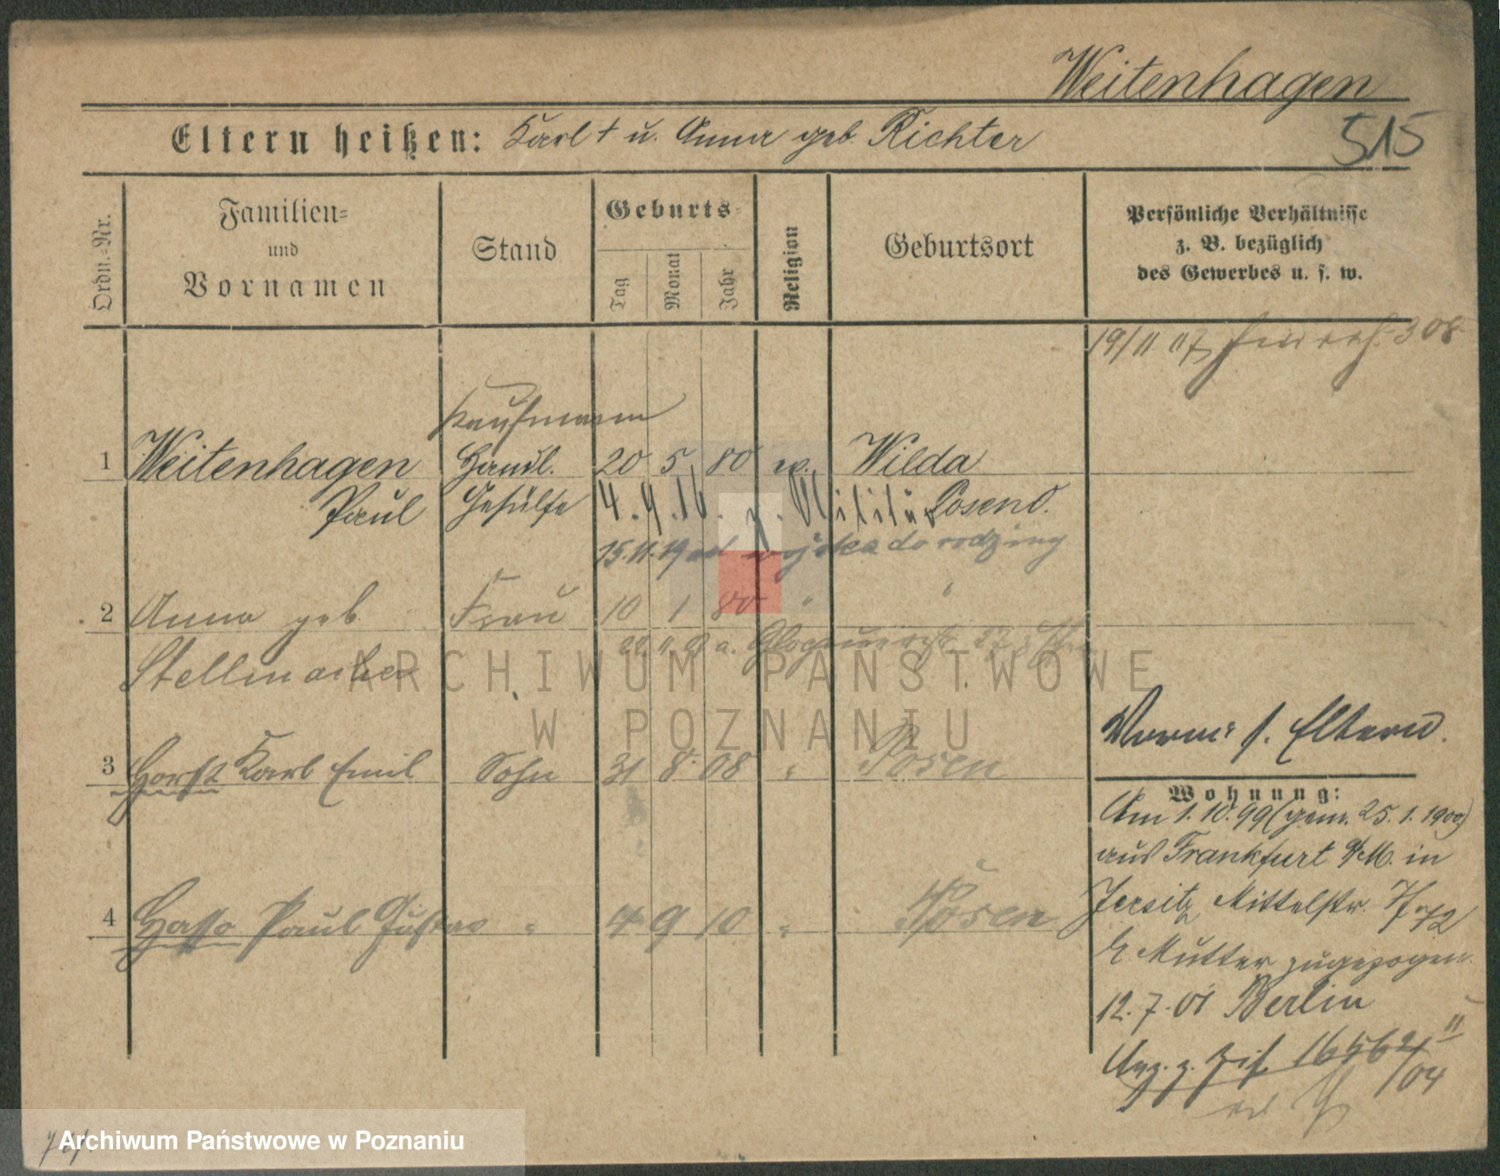 Weitenhagen
Eltern heißen: Karl † u. Anna geb Richter
515
Ordn.-Nr.
Familien-
und
Vornamen
Stand
Geburts-
Tag
Monat
Jahr
Religion
Geburtsort
Persönliche Verhältnisse
z. B. bezüglich
des Gewerbes u. s. w.
19/11 07 308
Kaufmann
1 Weitenhagen Handl. 20 5 80 ev. Wilda
Paul Gehülfe Posen O.
4.9.16. z. Militär
15.11.19 od wojska do rodziny
2 Anna geb Frau 10 1 80 " "
Stellmacher
a. Glogauerstr.
3 Horst Karl Emil Sohn 31 8 08 " Posen
4 Hasso Paul Gustav " 4 9 10 " Posen
Verm: s. Eltern.
Wohnung:
Am 1.10.99 (gem. 25.1.1900)
aus Frankfurt a/M. in
Jersitz Mittelstr.
Mutter zugezogen
12.7.01 Berlin
ARCHIWUM PAŃSTWOWE
W POZNANIU
Archiwum Państwowe w Poznaniu